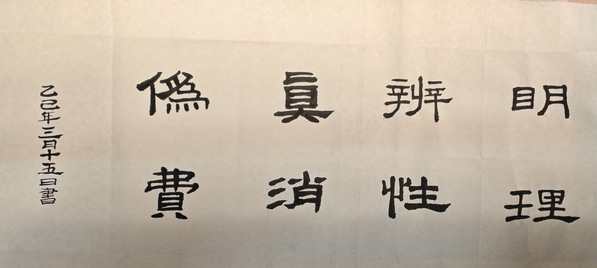 明辨真偽
理性消費
乙巳年三月十五日書